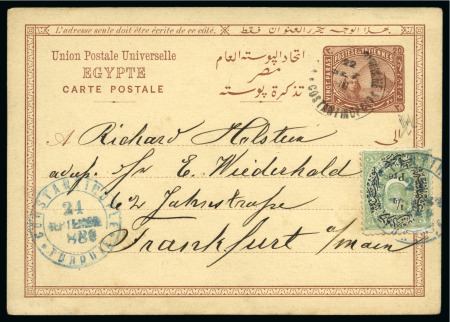 L'adresse seule doit être écrite de ce côté. هذا الوجه يحرر العنوان فقط
Union Postale Universelle اتحاد البوستة العام
EGYPTE مصر
CARTE POSTALE تذكرة بوستة
A Richard Holstein الى
adr. Hr E. Wiederhold
62 Jahnstraße
Frankfurt a/main
CONSTANTINOPLE
21
TURQUIE
22